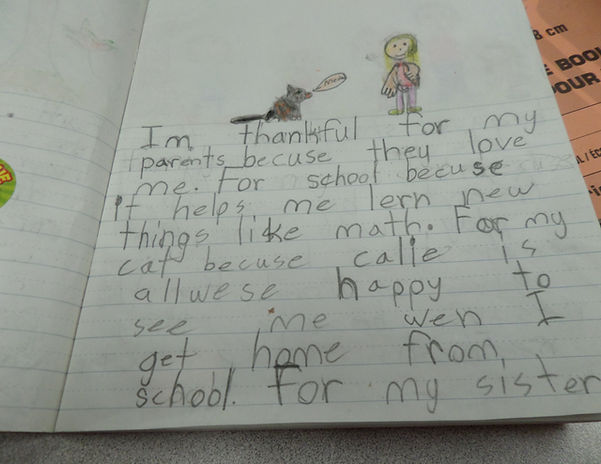 meow
Im thankful for my
parents becuse they love
me. For school becuse
it helps me lern new
things like math. For my
cat becuse calie is
allwese happy to
see me wen I
get home from
school. For my sister
8 cm
BOO
OUR